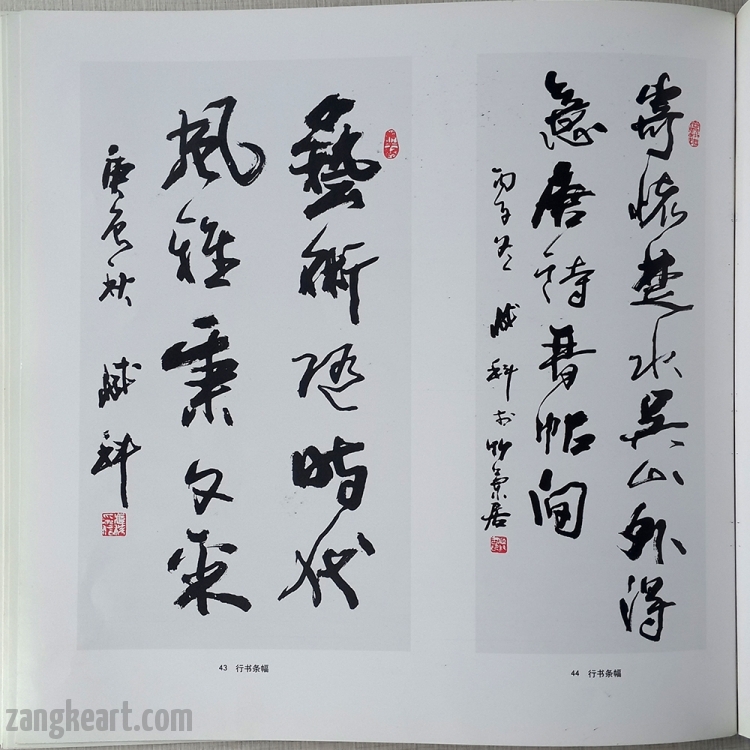 藝術隨時代
風雅秉文采
庚辰秋 臧科
43 行书条幅
寄懷楚水吳山外得
意唐詩晉帖間
丙子冬 臧科於竹居
44 行书条幅
zangkeart.com